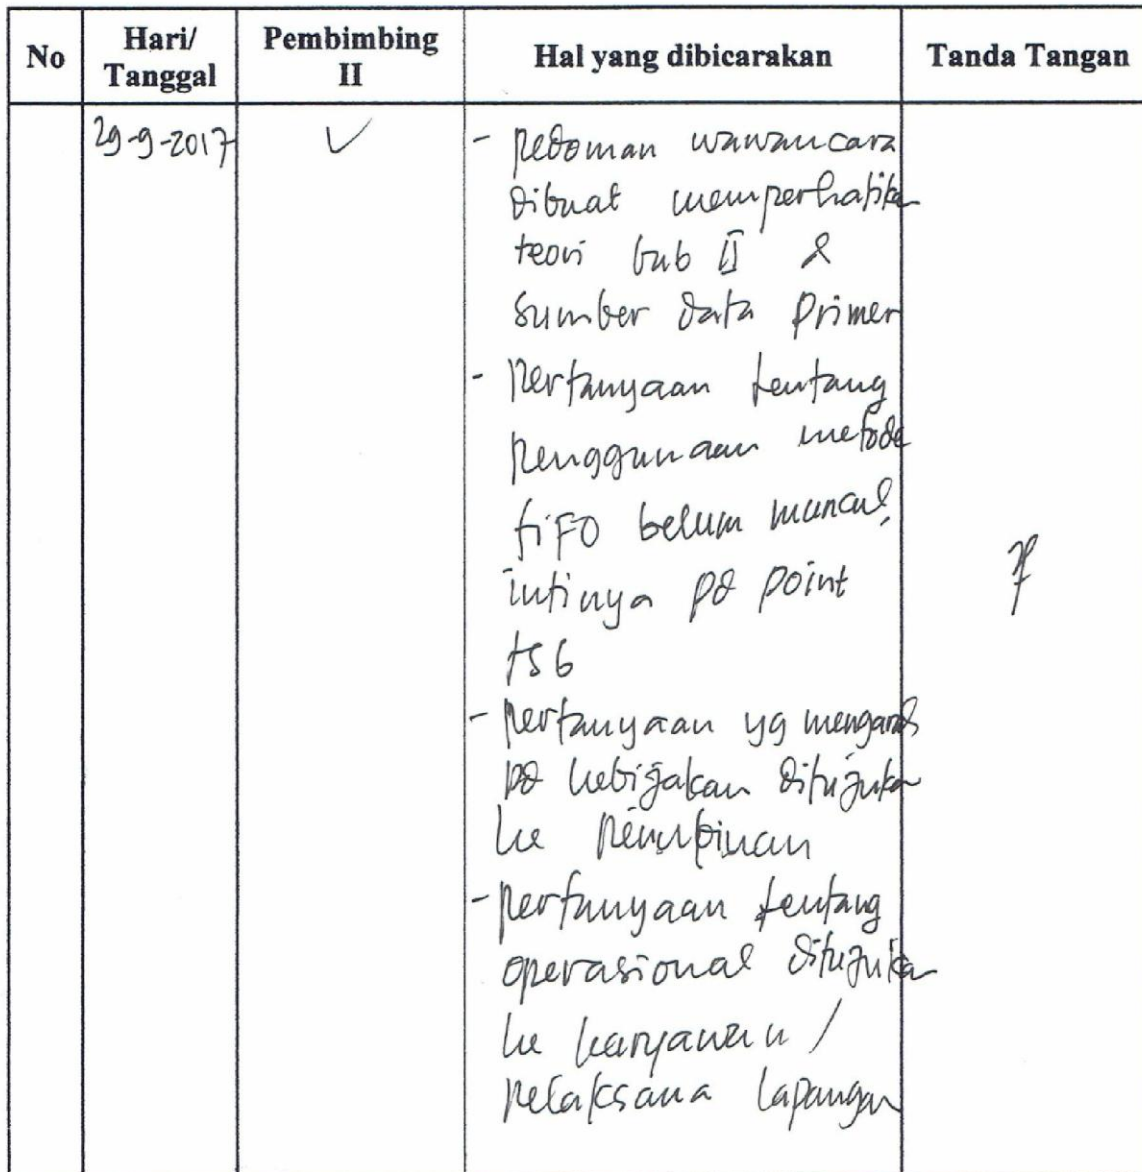 No Hari/ Tanggal Pembimbing II Hal yang dibicarakan Tanda Tangan
29-9-2017 ✓ - pedoman wawancara
dibuat memperhatikan
teori bab II &
sumber data primer
- Pertanyaan tentang
penggunaan metode
FIFO belum muncul,
intinya pd point
tsb
- pertanyaan yg mengarah
pd kebijakan ditujukan
ke pimpinan
- pertanyaan tentang
operasional ditujukan
ke karyawan /
pelaksana lapangan